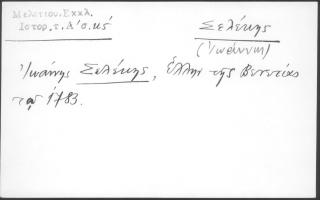 Μελετίου.Εκκλ.
Ιστορ.τ.Α΄σ.κς΄
Σελέκης
(Ἰωάννης)
Ἰωάνης Σελέκης, Ἕλλην τῆς Βενετίας
τῷ 1783.